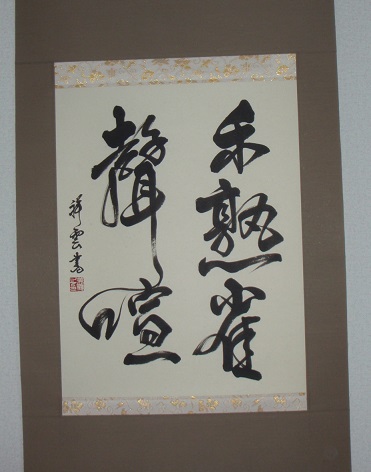 禾熟雀
聲喧
祥雲書